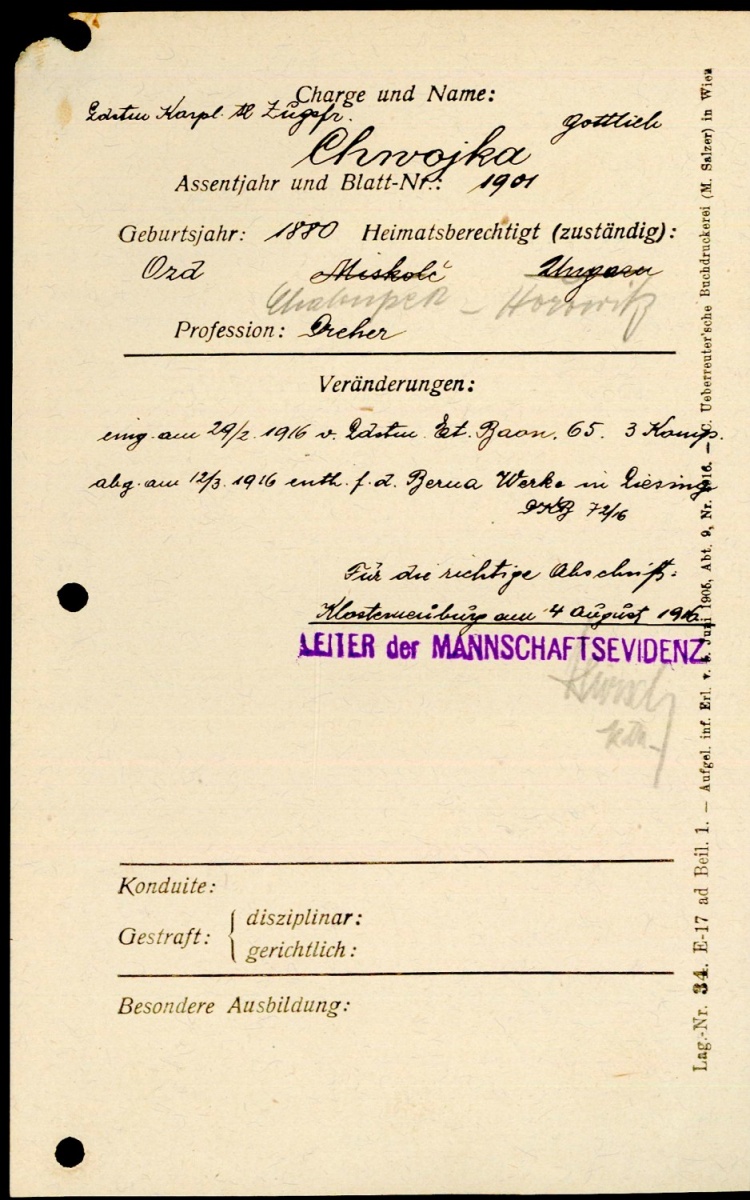 Charge und Name:
Ldstm Korpl. tit Zugsfr. Gottlieb
Chwojka
Assentjahr und Blatt-Nr.: 1901
Geburtsjahr: 1880 Heimatsberechtigt (zuständig):
Ozd Miskolč Ungarn
Profession: Dreher
Veränderungen:
eing. am 29/2. 1916 v. Ldstm. Et. Baon. 65. 3 Komp.
abg. am 12/3. 1916 enth. f. d. Berna Werke in Liesing
72/16
Für die richtige Abschrift:
Klosterneuburg am 4 August 1916.
LEITER der MANNSCHAFTSEVIDENZ
Konduite:
Gestraft: { disziplinar:
gerichtlich:
Besondere Ausbildung:
Lag.-Nr. 34. E-17 ad Beil. 1. — Aufgel. inf. Erl. v. Juni 1905, Abt. 9, Nr. — C. Ueberreuter'sche Buchdruckerei (M. Salzer) in Wien